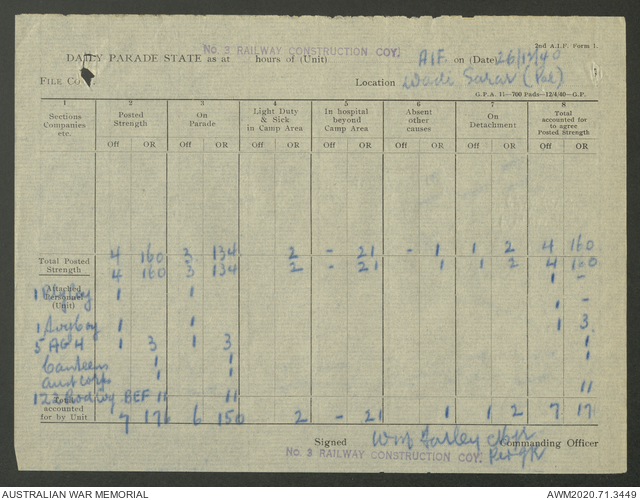 2nd A.I.F. Form 1.
No. 3 RAILWAY CONSTRUCTION COY.
DAILY PARADE STATE as at hours of (Unit) A.I.F. on (Date) 26/12/40
FILE COPY. Location Wadi Sarar (Pal)
G.P.A. 11—700 Pads—12/4/40—G.P.
1 2 3 4 5 6 7 8
Sections Companies etc. Posted Strength On Parade Light Duty & Sick in Camp Area In hospital beyond Camp Area Absent other causes On Detachment Total accounted for to agree Posted Strength
Off OR Off OR Off OR Off OR Off OR Off OR Off OR
4 160 3 134 2 - 21 - 1 1 2 4 160
Total Posted Strength 4 160 3 134 2 - 21 1 1 2 4 160
Attached Personnel (Unit) 1 1 1 -
1 1 1 1 -
5 AGH 1 3 1 3 1 3
Canteens 1 1 1
Aust Corps 1 1 1
BEF 11 11 11
Total accounted for by Unit 7 176 6 150 2 - 21 1 1 2 7 17
Signed Wm Farley Commanding Officer
No. 3 RAILWAY CONSTRUCTION COY.
AUSTRALIAN WAR MEMORIAL AWM2020.71.3449